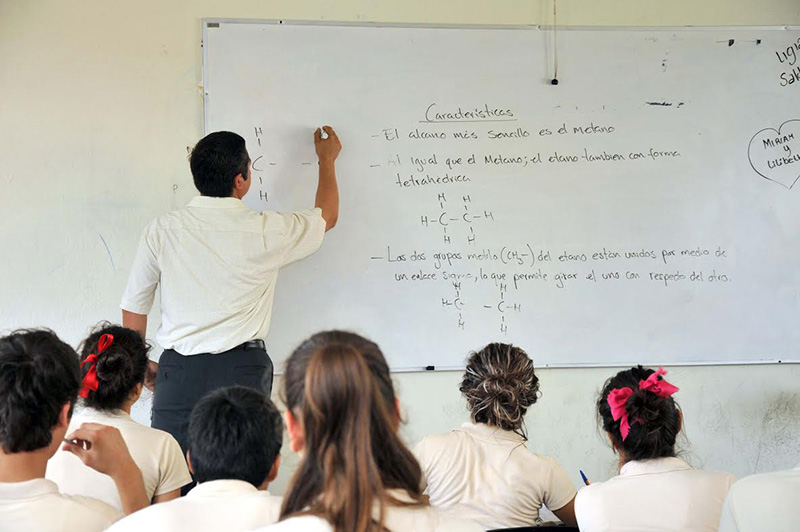 Caracteristicas
- El alcano más sencillo es el metano
- Al igual que el Metano; el etano tambien con forma
tetrahedrica
H H
H-C-C-H
H H
- Los dos grupos metilo (CH3-) del etano están unidos por medio de
un enlace sigma, lo que permite girar el uno con respecto del otro.
H H
H-C- -C-H
H H
H
C-
H
MIRIAM
y